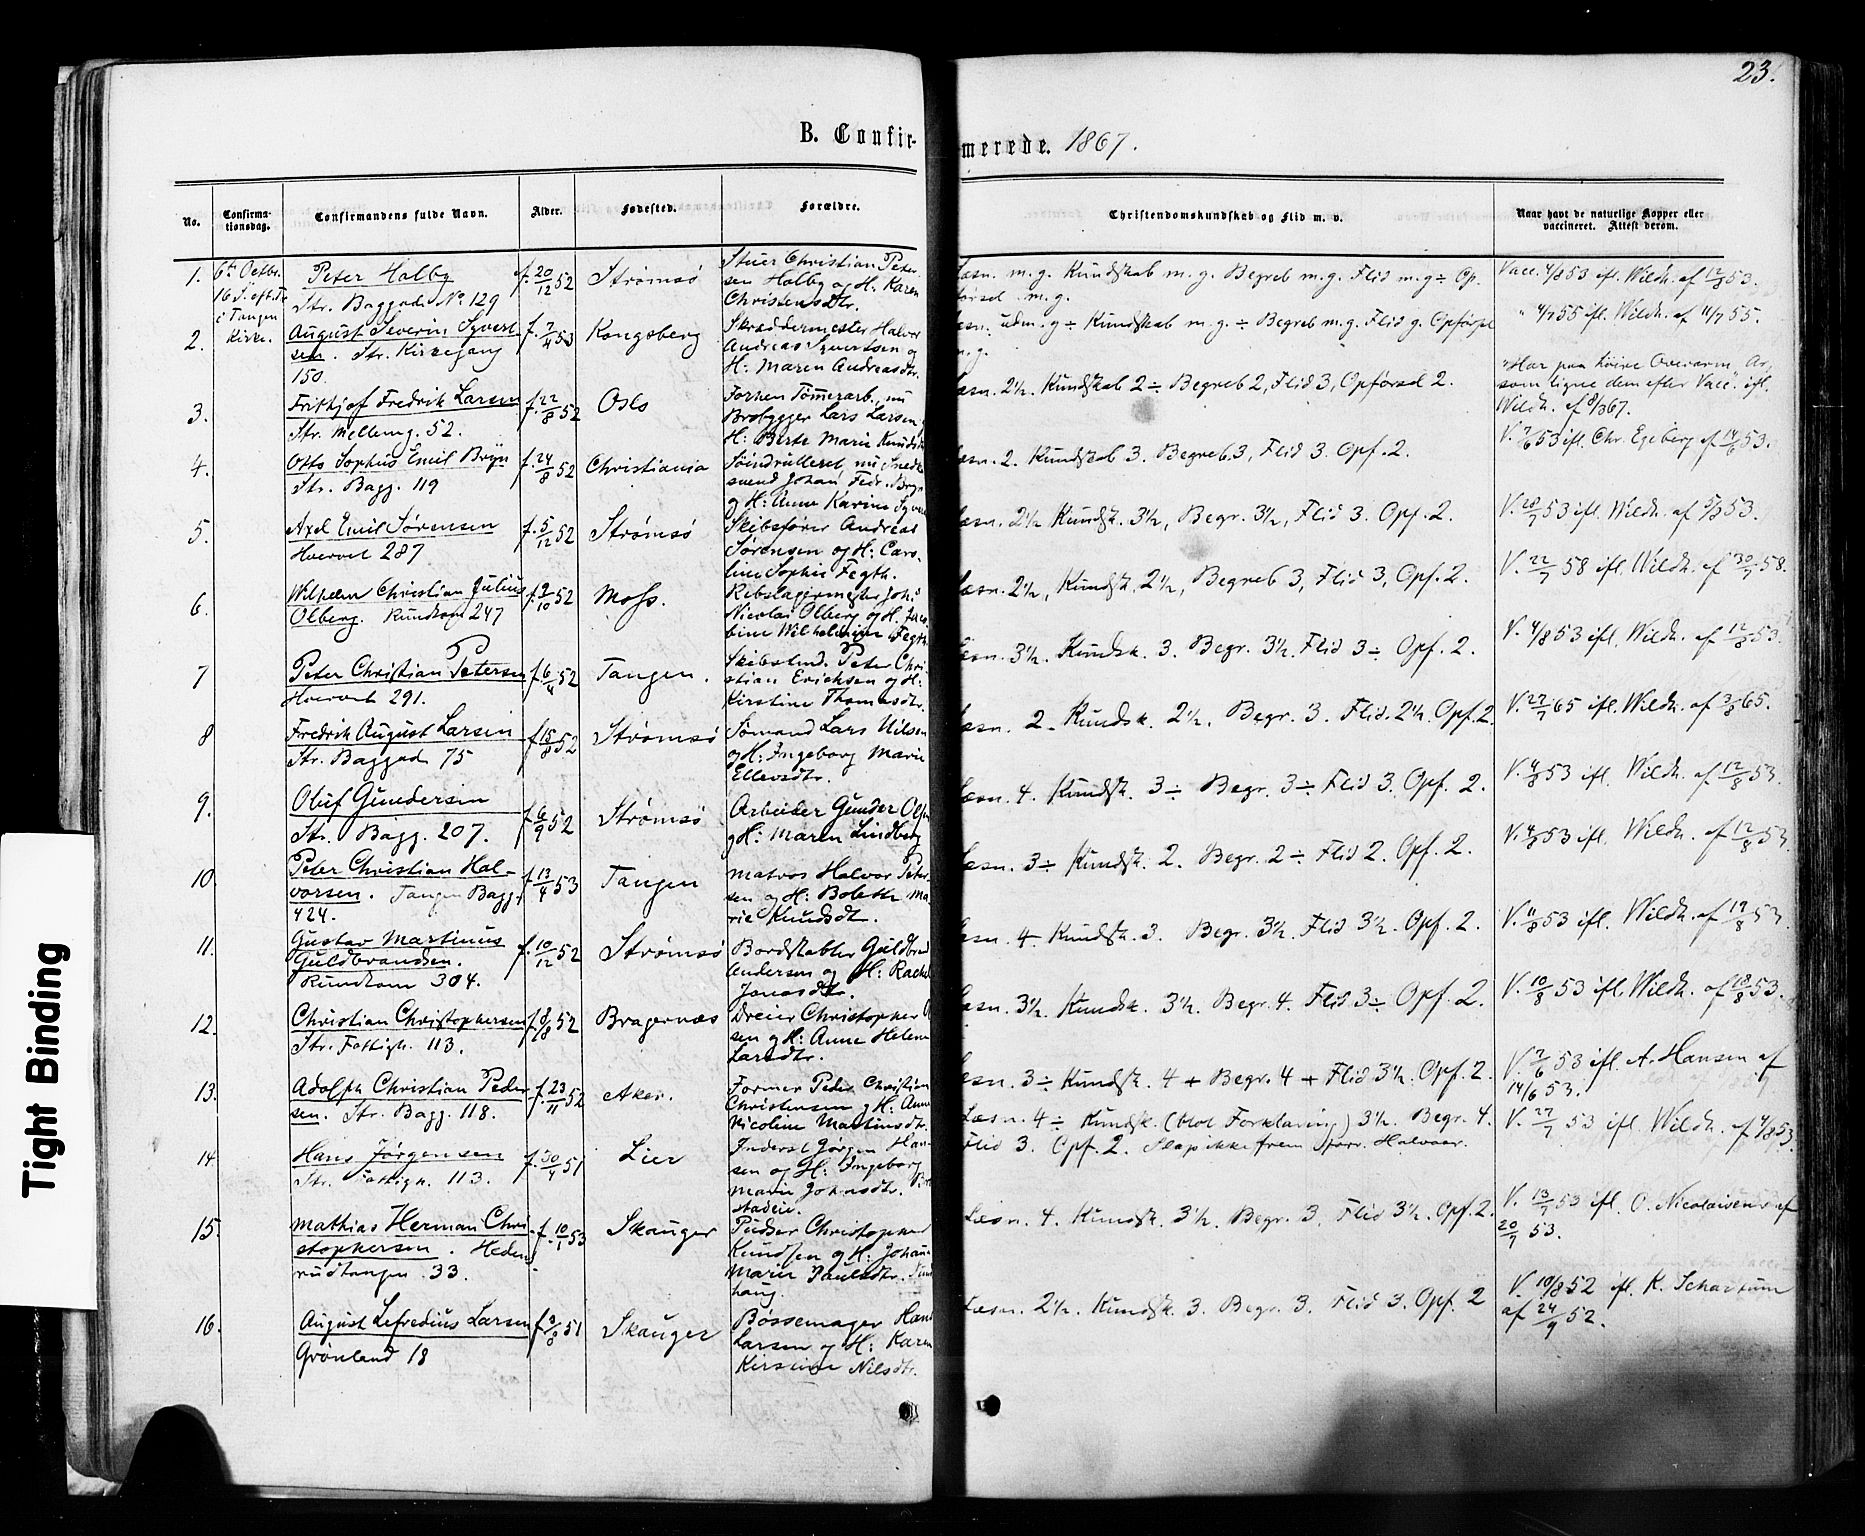 23.
B. Confir-
merede. 1867.
No.
Confirma-
tionsdag.
Confirmandens fulde Navn.
Alder.
Fødested.
Forældre.
Christendomskundskab og Flid m. v.
Naar havt de naturlige Kopper eller
vaccineret. Attest derom.
1.
6te Octbr.
16 S. eft. Tr.
i Tangen
Kirke.
Peter Halby
Str. Baggad. No 129
f. 20/12 52
Strømsø
Stuer Christian Peter-
sen Halby og H: Karen
Christensdtr.
Læsn. m. g. Kundskab m. g. Begreb m. g. Flid m. g ÷ Op-
førsel m. g.
Vacc. 4/8 53 ifl. Wildh. af 12/8 53.
2.
August Severin Syvert-
sen. Str. Kirkegang
150.
f. 7/4 53
Kongsberg
Skræddermester Halvor
Andreas Syvertsen og
H: Maren Andreasdtr.
Læsn. udm. g ÷ Kundskab m. g. ÷ Begreb m. g. Flid g. Opførsel
m. g.
" 4/7 55 ifl. Wildh. af 11/7 55.
3.
Frithjof Fredrik Larsen
Str. Mellemg. 52.
f. 22/8 52
Oslo
Forhen Tømmerarb., nu
Brobygger Lars Larsen
H: Berte Marie Knuds
Læsn. 2½ Kundskab 2 ÷ Begreb 2, Flid 3, Opførsel 2.
"Har paa høire Overarm Ar,
som ligne dem efter Vacc. ifl.
Wildh. af 8/3 67.
4.
Otto Sophus Emil Bryn
Str. Bagg. 119
f. 24/8 52
Christiania
nu Snedk
svend Johan Fedr. Bryn
og H: Anne Karine Syver
Læsn. 2. Kundskab 3. Begreb 3, Flid 3. Opf. 2.
V. 7/6 53 ifl. Chr. Egeberg af 14/6 53.
5.
Axel Emil Sørensen
Havnen 287
f. 5/12 52
Strømsø
Skibsfører Andreas
Sørensen og H: Caro-
line Sophie Fegth.
Læsn. 2½ Kundsk. 3½, Begr. 3½, Flid 3. Opf. 2.
V. 28/7 53 ifl. Wildh. af 5/8 53.
6.
Wilhelm Christian Julius
Olberg. Rundtom 247
f. 9/10 52
Moss.
Rebslagermester Joh:
Nicolai Olberg og H. Jaco-
bine Wilhelmine Fegth
Læsn. 2½, Kundsk. 2½, Begreb 3, Flid 3, Opf. 2.
V. 22/7 58 ifl. Wildh. af 30/7 58.
7
Peter Christian Petersen
291.
f. 6/4 52
Tangen.
Peter Chri-
stian Erichsen og H:
Kirstine Thomasdtr.
Læsn. 3½. Kundsk. 3. Begr. 3½. Flid 3 ÷ Opf. 2.
V. 4/8 53 ifl. Wildh. af 12/8 53.
8
Fredrik August Larsen
Str. Baggad. 75
f. 15/8 52
Strømsø
Sømand Lars Nilsen
og H: Ingeborg Marie
Ellevsdtr.
Læsn. 2. Kundsk. 2½. Begr. 3. Flid. 2½. Opf. 2.
V. 27/7 65 ifl. Wildh. af 3/8 65.
9.
Oluf Gundersen
Str. Bagg. 207.
f. 6/9 52
Strømsø
Arbeider Gunder Olsen
og H: Maren Lindberg
Læsn. 4. Kundsk. 3 ÷ Begr. 3 ÷ Flid 3. Opf. 2.
V. 4/8 53 ifl. Wildh. af 12/8 53.
10.
Peter Christian Hal-
vorsen. Tangen Bagg.
424.
f. 13/4 53
Tangen
Matros Halvor Peter-
sen og H: Bolette Ma-
rie Knudsdtr.
Læsn. 3 ÷ Kundsk. 2. Begr. 2 ÷ Flid 2. Opf. 2.
V. 4/8 53 ifl. Wildh. af 12/8 53.
11.
Gustav Martinus
Guldbrandsen.
Rundtom 304.
f. 10/12 52
Strømsø
Bordstabler Guldbrand
Andersen og H: Rachel
Jonasdtr.
Læsn. 4 ÷ Kundsk. 3. Begr. 3½. Flid 3½. Opf. 2.
V. 11/8 53 ifl. Wildh. af 19/8 53.
12.
Christian Christophersen
Str. Fattigh. 113.
f. 8/8 52
Bragernæs
Dreier Christopher
sen og H: Anne Helene
Larsdtr.
Læsn. 3½. Kundsk. 3½. Begr. 4. Flid 3 ÷ Opf. 2.
V. 10/8 53 ifl. Wildh. af 18/8 53.
13.
Adolph Christian Peder-
sen. Str. Bagg. 118.
f. 23/11 52
Aker.
Former Peder Christian
Christensen og H: Anne
Nicoline Martinsdtr.
Læsn. 3 ÷ Kundsk. 4 + Begr. 4 + Flid 3½. Opf. 2.
V. 7/6 53 ifl. A. Hansen af
14/6 53.
14
Hans Jørgensen
Str. Fattigh. 113.
f. 30/4 51
Lier
Inderst Jørgen Han-
sen og H: Ingeborg
Marie Johnsdtr.
Læsn. 4 ÷ Kundsk. (blot Forklaring) 3½. Begr. 4.
Flid 3. Opf. 2.
V. 27/7 53 ifl. Wildh. af 4/8 53
15.
Mathias Herman Chri-
stophersen. Hedens-
rudtangen 33.
f. 10/1 53
Skauger
Pudser Christopher
Knudsen og H: Johanne
Marie Paulsdtr.
haug.
Læsn. 4. Kundsk. 3½. Begr. 3. Flid 3½. Opf. 2.
V. 13/7 53 ifl. O. Nicolaisen af
20/7 53.
16.
August Lefredius Larsen
Grønland 18
f. 3/8 51
Skauger
Bøssemager Hans
Larsen og H: Karen
Kirstine Nilsdtr.
Læsn. 2½. Kundsk. 3. Begr. 3. Flid 3. Opf. 2
V. 10/8 52 ifl. K. Schartum
af 24/9 52.
Tight Binding